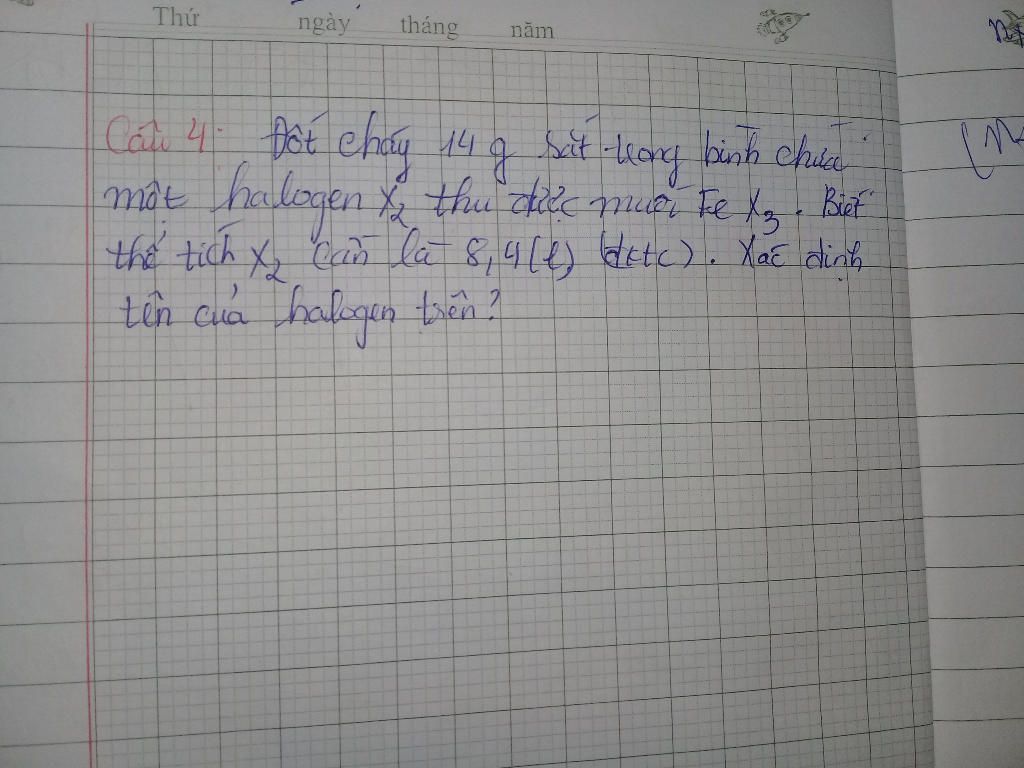 Thứ ngày tháng năm
Câu 4: Đốt cháy 14 g sắt trong bình chứa
một halogen X₂ thu được muối FeX₃. Biết
thể tích X₂ cần là 8,4(l) (đktc). Xác định
tên của halogen trên?